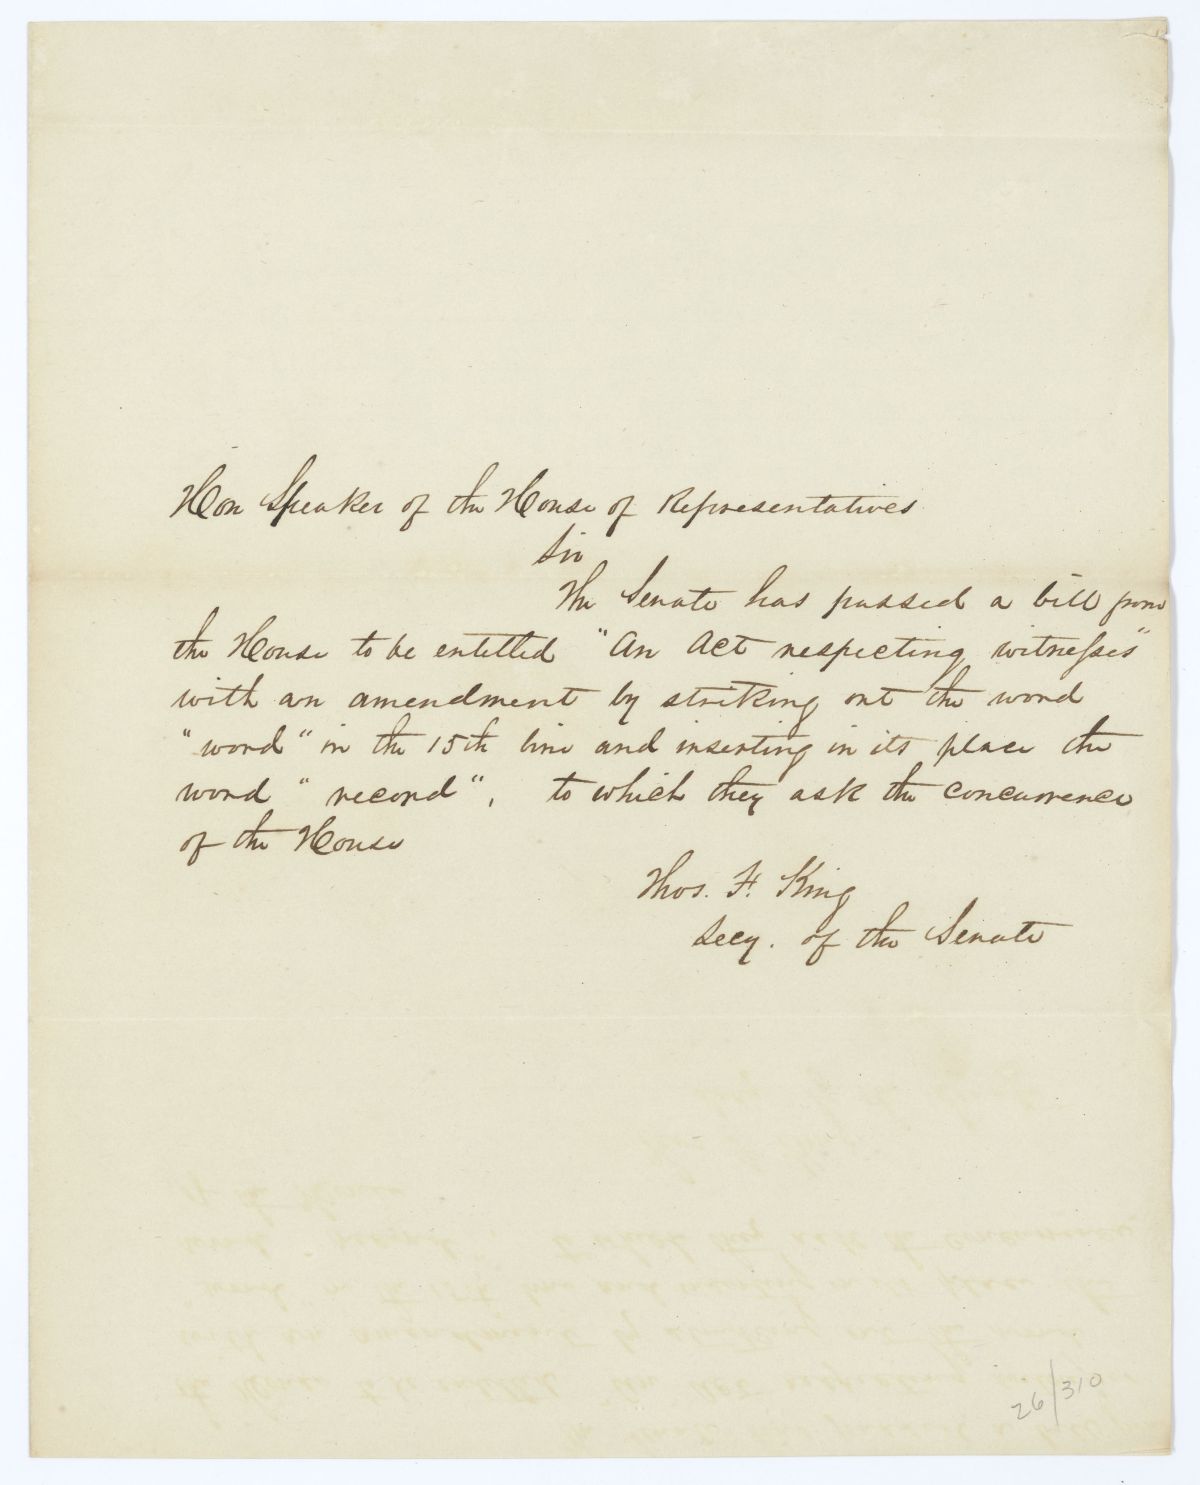 Hon Speaker of the House of Representatives
Sir
The Senate has passed a bill from
the House to be entitled "An Act respecting witnesses"
with an amendment by striking out the word
"word" in the 15th line and inserting in its place the
word "record", to which they ask the concurrence
of the House
Thos. F. King
Secy. of the Senate
26/310